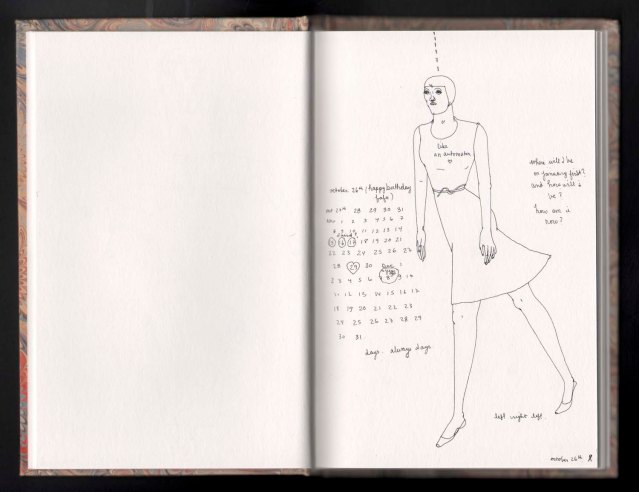 like
an automaton
where will i be
on january first?
and how will i
be?
how are u
now?
october 26th (happy birthday
oct 27th 28 29 30 31
nov 1 2 3 4 5 6 7
11 12 13 14
15 16 17 18 19 20 21
22 23 24 25 26 27
28 29 30
2 3 4 5 6
11 12 13 14 15 16 17
18 19 20 21 22 23
24 25 26 27 28 29
30 31
days. always days
left right left
october 26th